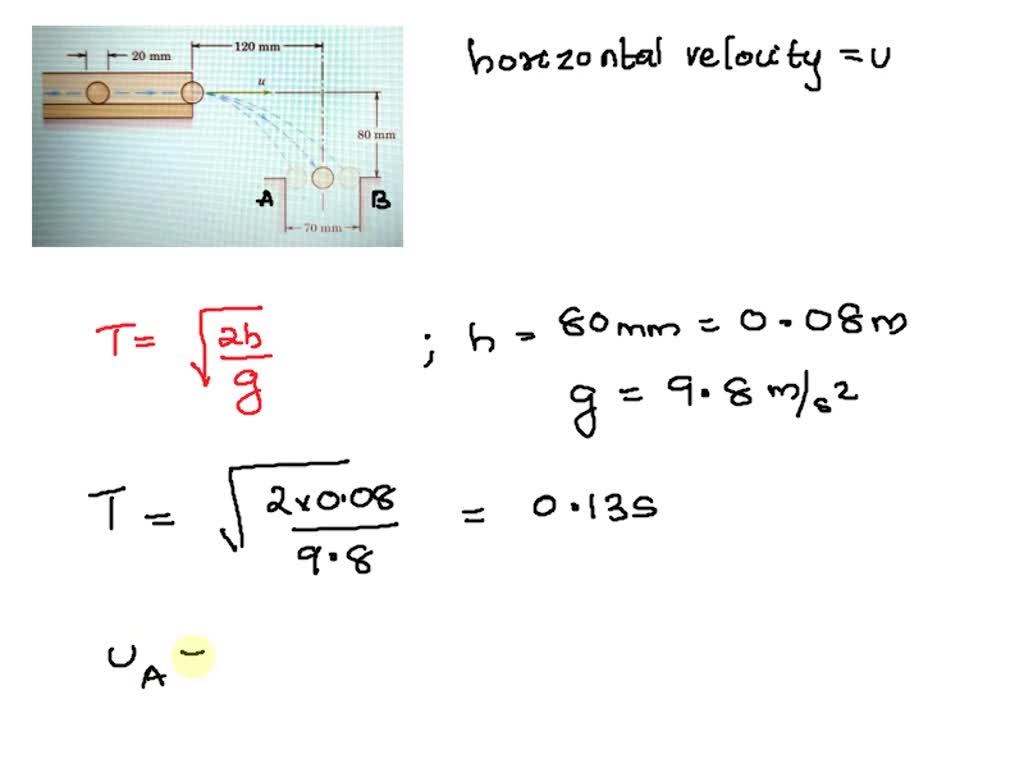 20 mm
120 mm
u
80 mm
A
B
70 mm
horizontal velocity = u
T = √2h/g ; h = 80mm = 0.08m
g = 9.8 m/s2
T = √2×0.08/9.8 = 0.13s
UA =